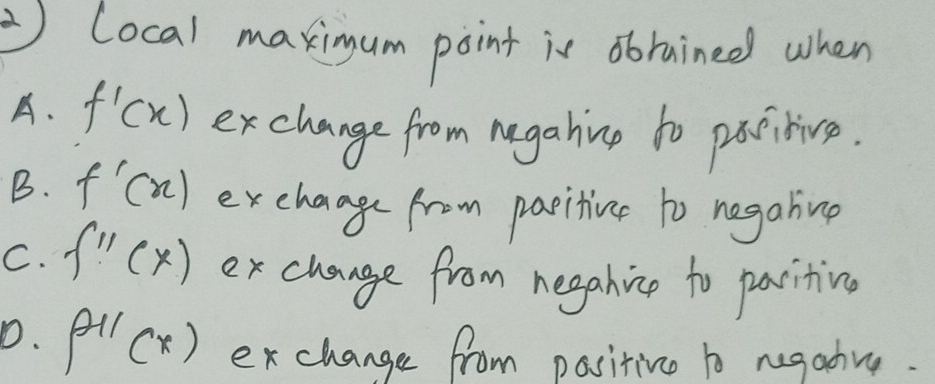 2) Local maximum point is obtained when
A. f'(x) exchange from negative to positive.
B. f'(x) exchange from positive to negative
C. f''(x) exchange from negative to positive
D. f''(x) exchange from positive to negative.